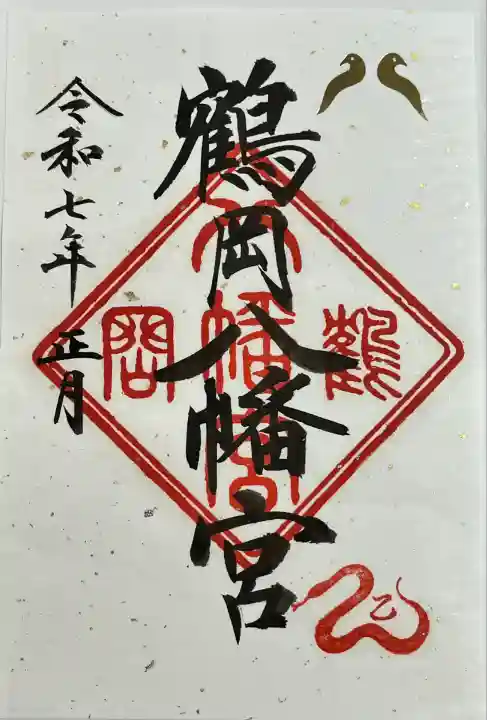 鶴岡八幡宮
令和七年 正月
鶴
八幡宮
岡
乙巳